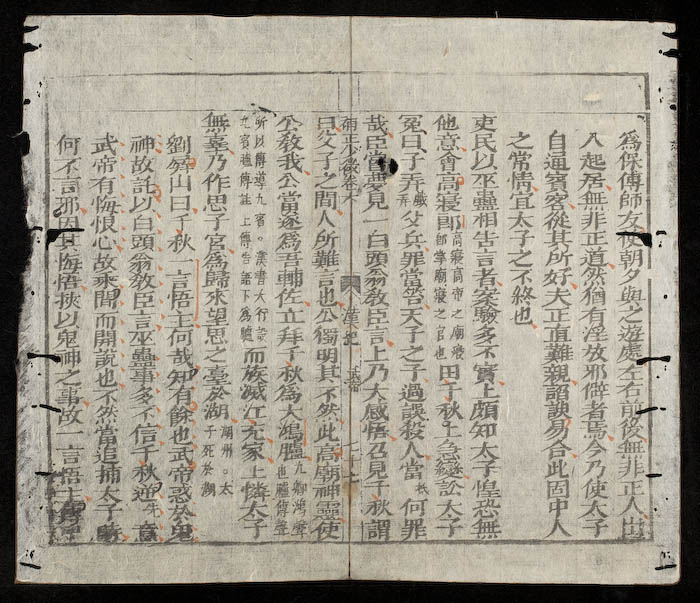 爲保傅師友使朝夕與之遊處左右前後無非正人出
入起居無非正道然猶有淫放邪僻者焉今乃使太子
自通賓客從其所好夫正直難親諂諛易合此固中人
之常情宜太子之不終也
吏民以巫蠱相告言者案驗多不實上頗知太子惶恐無
他意會高寢郎高寢高帝之廟寢郎掌廟寢之官也田千秋上急變訟太子
冤曰子弄戲父兵罪當笞天子之子過誤殺人當抵何罪
哉臣嘗夢見一白頭翁敎臣言上乃大感悟召見千秋謂
少微卷六 漢紀 武帝 七十七
曰父子之間人所難言也公獨明其不然此高廟神靈使
公敎我公當遂爲吾輔佐立拜千秋爲大鴻臚九卿鴻聲也臚傳聲
所以傳導九賓。漢書大行設九賓臚傳註上傳告語下爲臚而族滅江充家上憐太子
無辜乃作思子宮爲歸來望思之臺於湖湖州。太子死於湖
劉屏山曰千秋一言悟主何哉知有餘也武帝惑於鬼
神故託以白頭翁敎臣言巫蠱事多不信千秋逆意
武帝有悔恨心故乘間而開說也不然當追捕太子時
何不言邪因其悔悟挾以鬼神之事故一言悟主